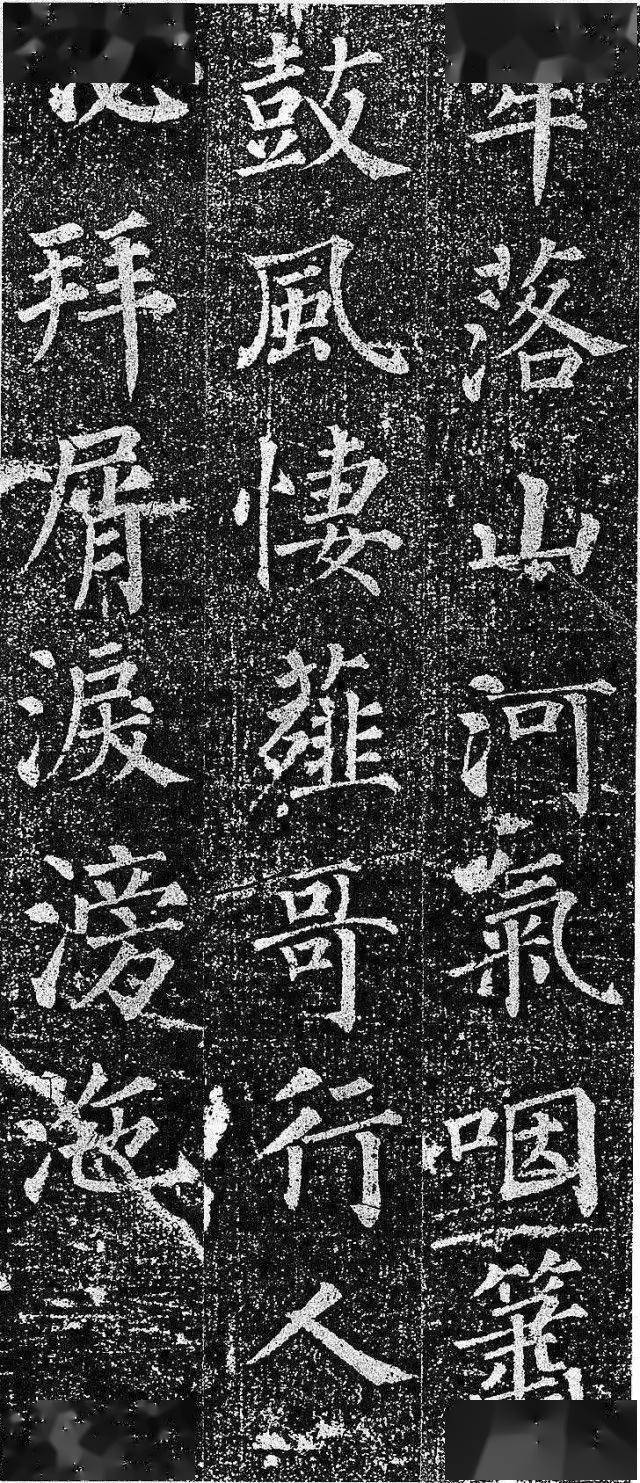 落山河氣咽簫
鼓風悽薤哥行人
拜屑淚滂沲